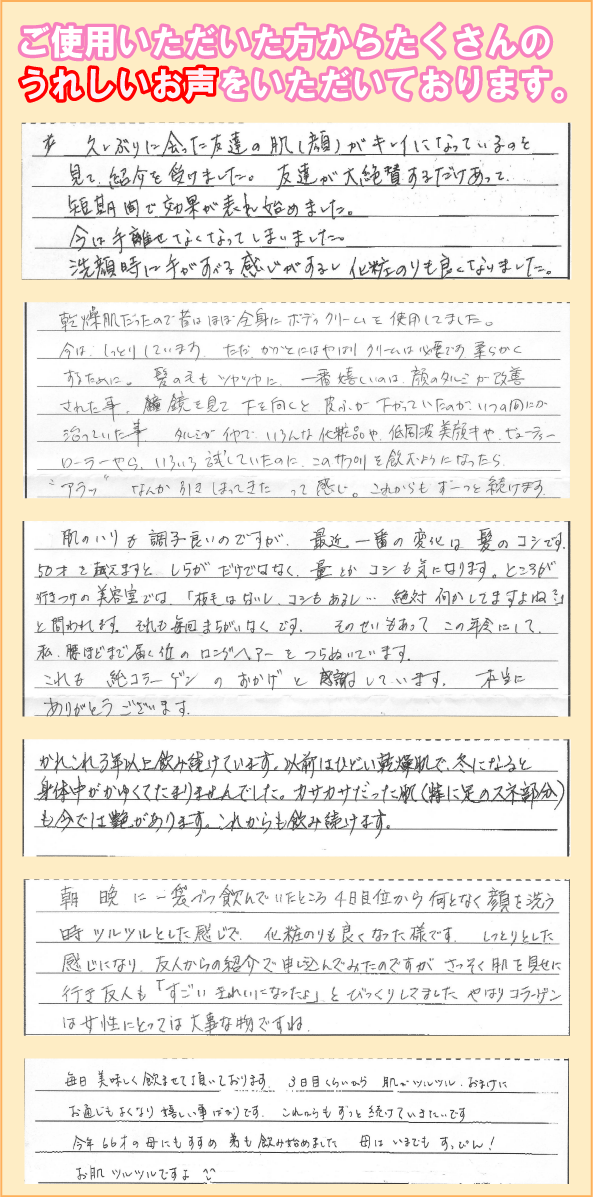 ご使用いただいた方からたくさんの
うれしいお声をいただいております。
* 久しぶりに会った友達の肌(顔)がキレイになっているのを
見て、紹介を受けました。 友達が大絶賛するだけあって、
短期間で効果が表れ始めました。
今は手離せなくなってしまいました。
洗顔時に手がすべる感じがするし 化粧のりも良くなりました。
乾燥肌だったので昔はほぼ全身にボディクリームを使用してました。
今は、しっとりしています。ただ、かかとにはやはりクリームは必要です 柔らかく
するために。 髪の毛もツヤツヤに、一番嬉しいのは、顔のタルミが改善
された事。 鏡を見て 下を向くと 皮ふが 下がっていたのが、いつの間にか
治っていた事 タルミがイヤで、いろんな化粧品や、低周波美顔キや、ビューティー
ローラーやら、いろいろ試していたのに、このサプリを飲むようになったら、
"アラッ" なんか引きしまってきた って感じ。これからもずーっと続けます
肌のハリも調子良いのですが、 最近一番の変化は 髪のコシです。
50才を越えますと、しらがだけではなく、量とか コシも気になります。ところが
行きつけの美容室では、「枝毛はないし、コシもあるし… 絶対 何かしてますよね?」
と問われます。それも毎回まちがいなくです。 そのせいもあって この年令にして、
私、腰ほどまで届く位の ロングヘアーを つらぬいています。
これも 純コラーゲン の おかげ と 感謝しています。 本当に
ありがとうございます。
かれこれ3年以上飲み続けています。以前はひどい乾燥肌で、冬になると
身体中がかゆくてたまりませんでした。カサカサだった肌(特に足のスネ部分)
も今では艶があります。これからも飲み続けます。
朝 晩 に 一袋づつ飲んでいたところ 4日目位から何となく顔を洗う
時ツルツルとした感じで、化粧のりも良くなった様です。 しっとりとした
感じになり、友人からの紹介で申し込んでみたのですが さっそく肌を見せに
行き友人も「すごい きれいになったよ」とびっくりしてました やはりコラーゲン
は女性にとっては大事な物ですね。
毎日 美味しく飲ませて頂いております。 3日目くらいから 肌がツルツル、おまけに
お通じもよくなり 嬉しい事ばかりです。 これからも ずっと続けていきたいです
今年66才の母にもすすめ 弟も飲み始めました 母は いまでも すっぴん!
お肌 ツルツルですよ